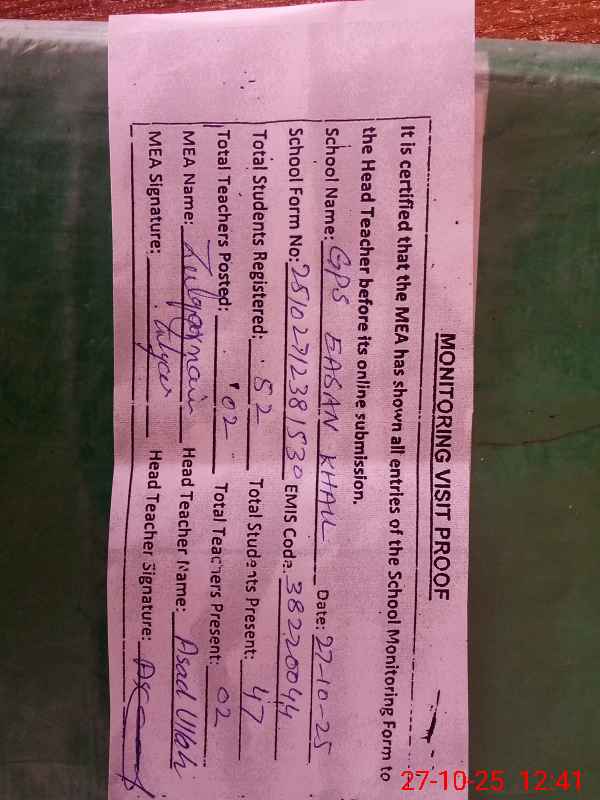 MONITORING VISIT PROOF
It is certified that the MEA has shown all entries of the School Monitoring Form to
the Head Teacher before its online submission.
School Name: GPS EASAN KHAIL Date: 27-10-25
School Form No: 25102712381530 EMIS Code: 38220044
Total Students Registered: 52 Total Students Present: 47
Total Teachers Posted: 02 Total Teachers Present: 02
MEA Name: Zulqarnain Head Teacher Name: Asad Ullah
MEA Signature: Head Teacher Signature:
27-10-25 12:41